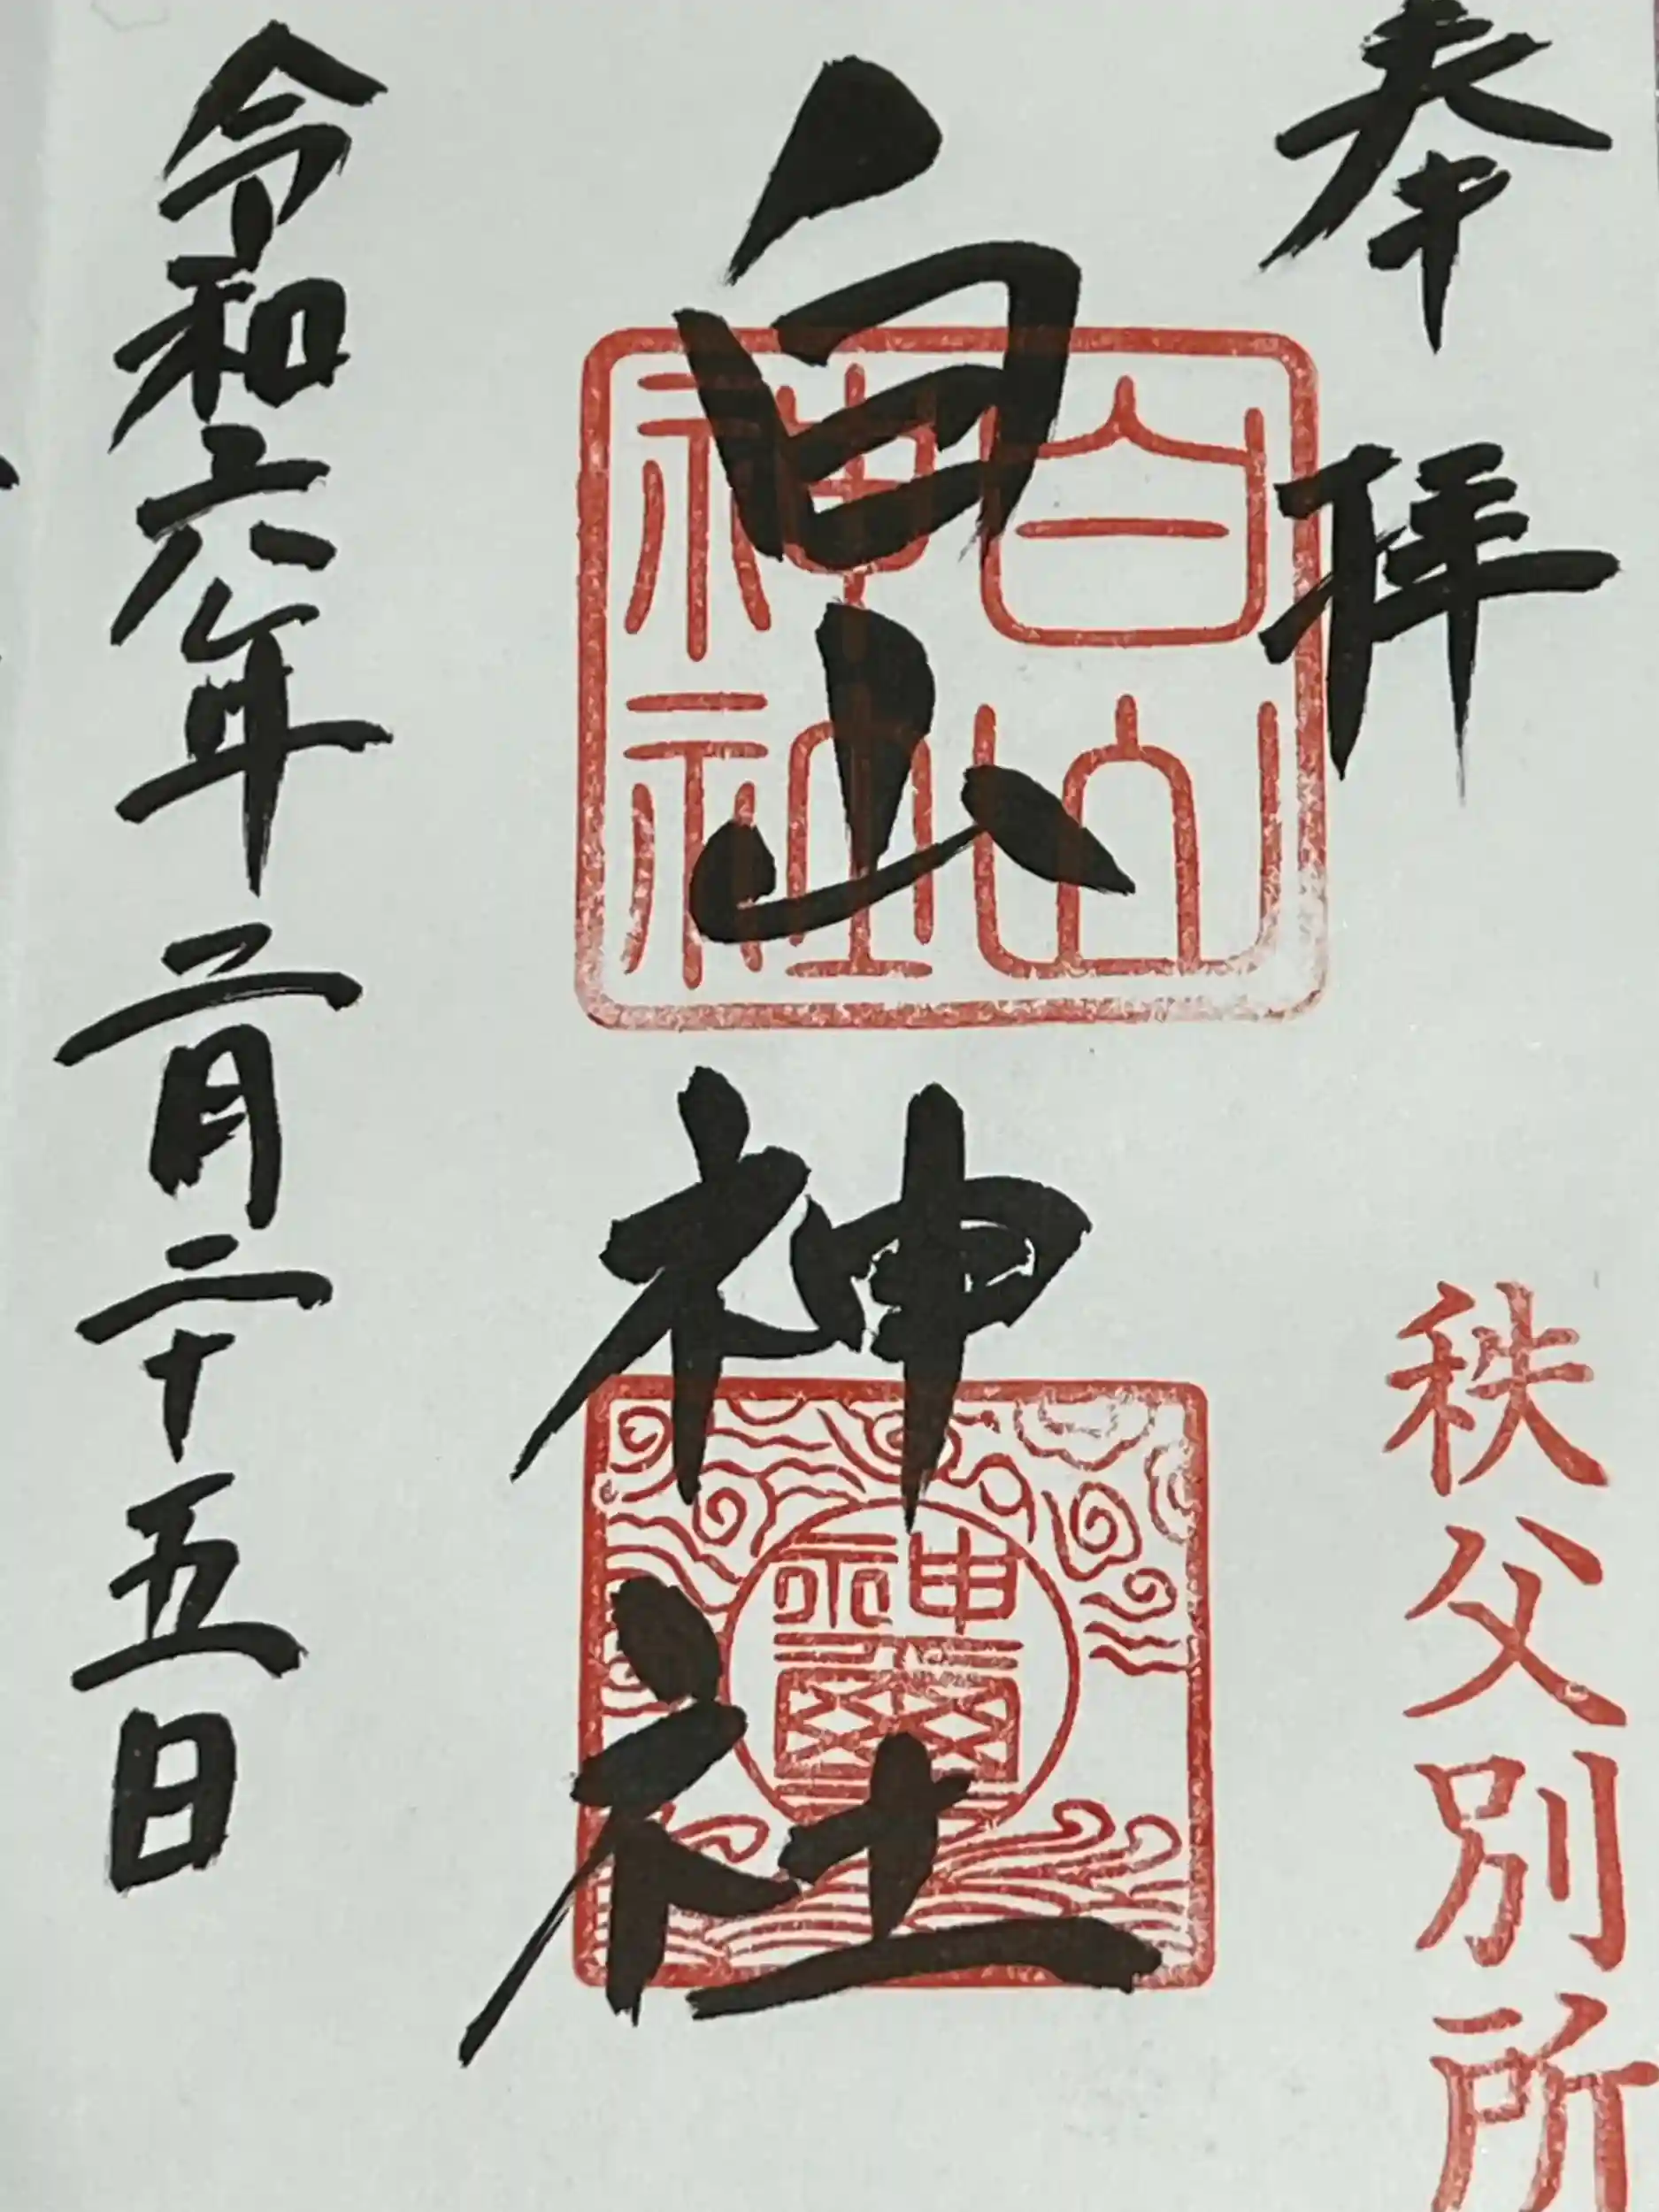 奉拝
秩父別所
白山神社
白山
神社
令和六年二月二十五日